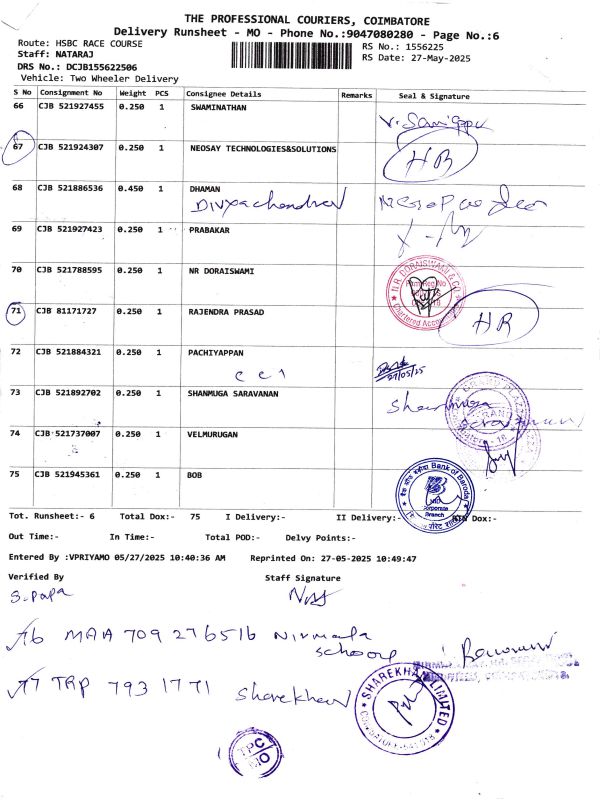 THE PROFESSIONAL COURIERS, COIMBATORE
Delivery Runsheet - MO - Phone No.:9047080280 - Page No.:6
Route: HSBC RACE COURSE
RS No.: 1556225
Staff: NATARAJ
RS Date: 27-May-2025
DRS No.: DCJB155622506
Vehicle: Two Wheeler Delivery
S No Consignment No Weight PCS Consignee Details Remarks Seal & Signature
66 CJB 521927455 0.250 1 SWAMINATHAN
67 CJB 521924307 0.250 1 NEOSAY TECHNOLOGIES&SOLUTIONS HR
68 CJB 521886536 0.450 1 DHAMAN
Divyachandran
69 CJB 521927423 0.250 1 PRABAKAR
70 CJB 521788595 0.250 1 NR DORAISWAMI
N.R. DORAISWAMI & CO
Chartered Accountants
71 CJB 81171727 0.250 1 RAJENDRA PRASAD HR
72 CJB 521884321 0.250 1 PACHIYAPPAN
CC1
27/05/25
73 CJB 521892702 0.250 1 SHANMUGA SARAVANAN
Shanmuga
Saravanan
74 CJB 521737007 0.250 1 VELMURUGAN
75 CJB 521945361 0.250 1 BOB
Bank of Baroda
Corporate
Branch
Tot. Runsheet:- 6 Total Dox:- 75 I Delivery:- II Delivery:- Dox:-
Out Time:- In Time:- Total POD:- Delvy Points:-
Entered By :VPRIYAMO 05/27/2025 10:40:36 AM Reprinted On: 27-05-2025 10:49:47
Verified By Staff Signature
S. Papa
76 MAA 709 276516 Nirmala
School
77 TRP 793 1771 Sharekhan
SHAREKHAN LIMITED
TPC
MO